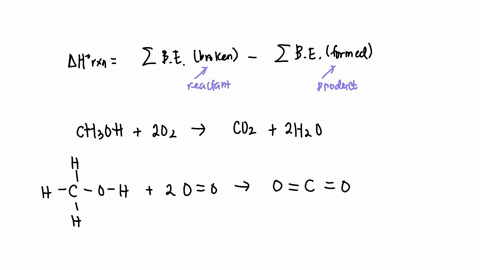 ΔH°rxn = Σ B.E. (broken) - Σ B.E. (formed)
reactant product
CH3OH + 2O2 → CO2 + 2H2O
H
H - C - O - H + 2 O = O → O = C = O
H